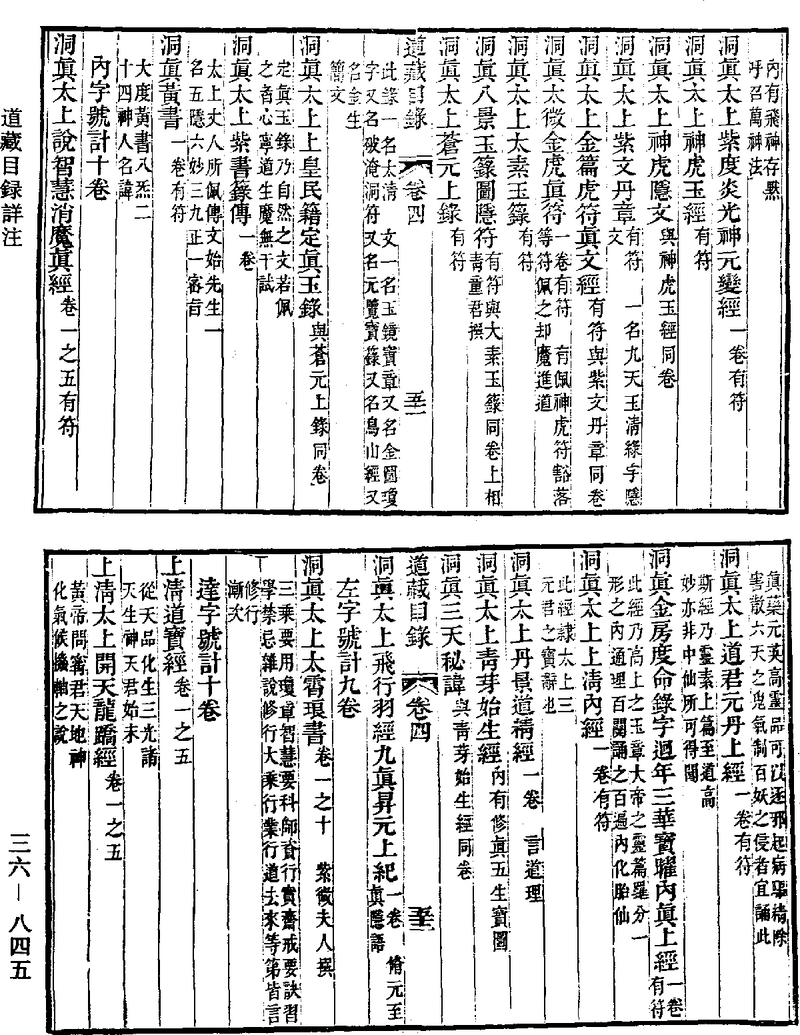 內有飛神存㷖
呼召萬神法
洞眞太上紫度炎光神元變經 一卷有符
洞眞太上神虎玉經 有符
洞眞太上神虎隱文 與神虎玉經同卷
洞眞太上紫文丹章 有符 一名九天玉清綠字隱
文
洞眞太上金篇虎符眞文經 有符與紫文丹章同卷
洞眞太微金虎眞符 一卷有符 有佩神虎符豁落
等符佩之却魔進道
洞眞太上太素玉籙 有符
洞眞八景玉籙圖隱符 有符與大素玉籙同卷上相
青童君撰
洞眞太上蒼元上錄 有符
道藏目錄 卷四 五二
此錄一名太清 文一名玉鏡寶章又名金圖瓊
字又名破淹洞符又名元覽寶籙又名鳥山經又
名金生
簡文
洞眞太上上皇民籍定眞玉錄 與蒼元上錄同卷
定眞玉錄乃自然之文若佩
之者心寧道生魔無干試
洞眞太上紫書籙傳 一卷
太上丈人所佩傳文始先生一
名五隱六妙三九正一密旨
洞眞黃書 一卷有符
大度黃書八炁二
十四神人名諱
內字號計十卷
洞眞太上說智慧消魔眞經 卷一之五有符
道藏目録詳注
眞藥元英高靈品可以逐邪起病驛精除
害散六天之鬼氣制百妖之侵者宜誦此
洞眞太上道君元丹上經 一卷有符
斯經乃靈素上篇至道高
妙亦非中仙所可得聞
洞眞金房度命錄字迴年三華寶曜內眞上經 一卷
有符
此經乃高上之玉章大帝之靈篇羅分一
形之內通理百關誦之百遍內化胎仙
洞眞太上上清內經 一卷有符
此經隷太上三
元君之寶辭也
洞眞太上丹景道精經 一卷 言道理
洞眞太上青芽始生經 內有修眞五生寶圖
洞眞三天秘諱 與青芽始生經同卷
道藏目錄 卷四 五三
洞眞太上飛行羽經九眞昇元上紀 一卷 脩元至
眞隱語
左字號計九卷
洞眞太上太霄琅書 卷一之十 紫微夫人撰
三乘要用瓊章智慧要科師資行實齋戒要訣習
學禁忌雜說修行大乘行業行道去來等第皆言
修行
漸次
達字號計十卷
上淸道寶經 卷一之五
從天品化生三光諸
天生神天君始末
上淸太上開天龍蹻經 卷一之五
黃帝問甯君天地神
化氣候機軸之說
三六—八四五